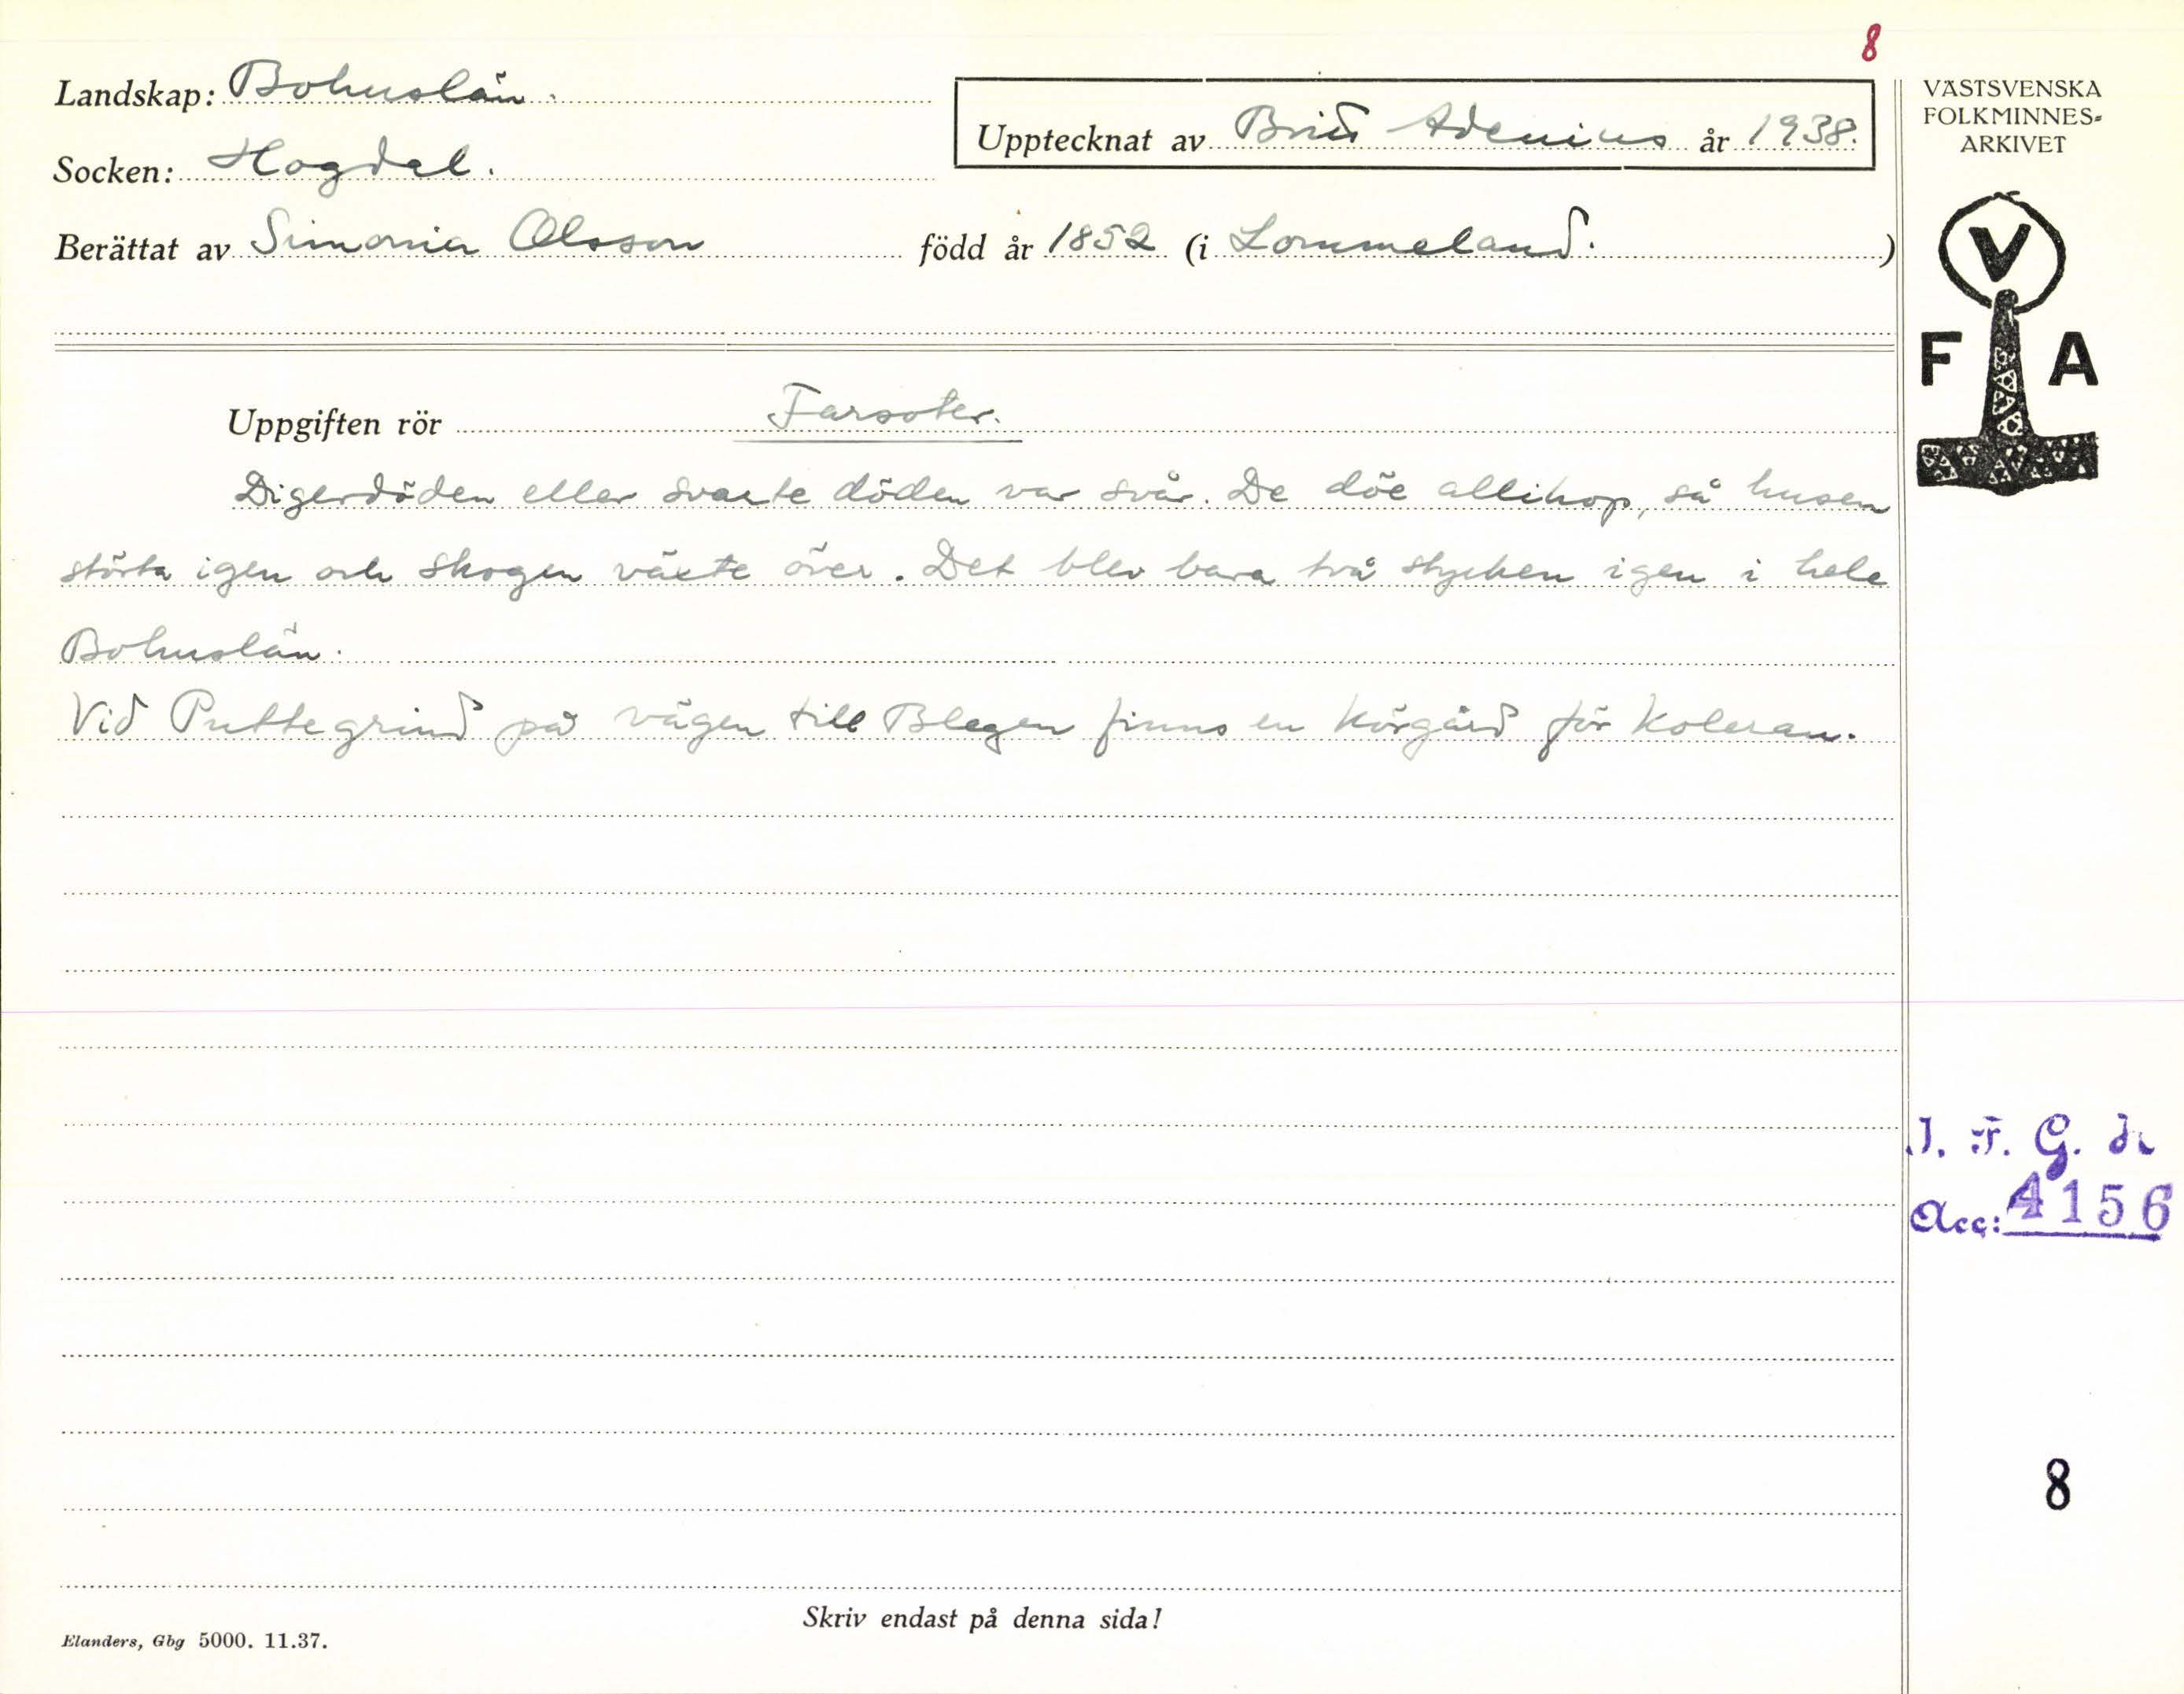 8
Landskap: Bohuslän.
Upptecknat av Britt Adenius år 1938.
Socken: Hogdal.
Berättat av Simonia Olsson född år 1852 (i Lommeland.)
VÄSTSVENSKA
FOLKMINNES-
ARKIVET
V
F A
Uppgiften rör Farsoter.
Digerdöden eller svarte döden var svår. De döe allihop, så husen
störta igen och skogen växte över. Det blev bara två stycken igen i hele
Bohuslän.
Vid Puttegrind på vägen till Blegen finns en körgård för koleran.
I. F. G. nr
Acc: 4156
8
Skriv endast på denna sida!
Elanders, Gbg 5000. 11.37.